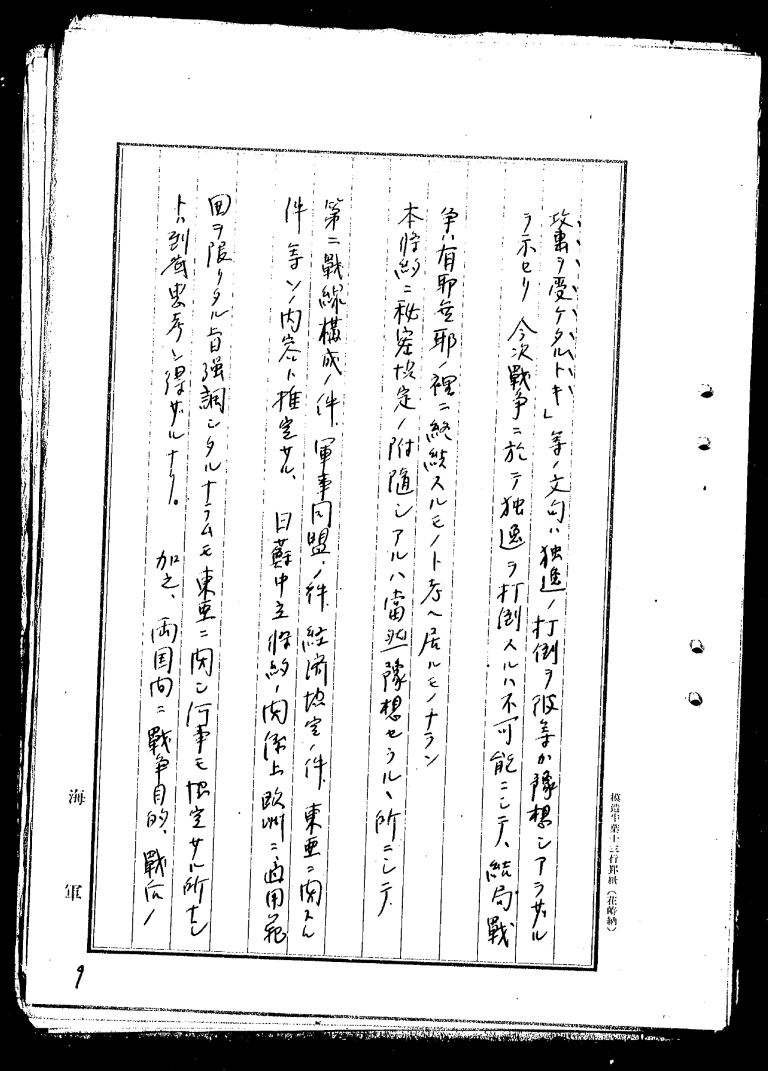 攻撃ヲ受ケタルトキ」等ノ文句ハ独逸ノ打倒ヲ彼等カ豫想シアラザル
ヲ示セリ 今次戦争ニ於テ独逸ヲ打倒スルハ不可能ニシテ、結局戦
争ハ有耶無耶ノ裡ニ終結スルモノト考ヘ居ルモノナラン
本條約ニ秘密協定ノ附随シアルハ當然豫想セラルヽ所ニシテ
第二戰線構成ノ件、軍事同盟ノ件、経済協定ノ件、東亜ニ関スル
件等ソノ内容ト推定サル、日蘇中立條約ノ関係上欧洲ニ適用範
囲ヲ限リタル旨強調シタルナラムモ東亜ニ関シ何事モ協定サル所ナシ
トハ到底思考シ得ザルナリ。 加之、両国間ニ戰争目的、戰后ノ
海軍
模造半葉十三行罫紙(花崎納)
9